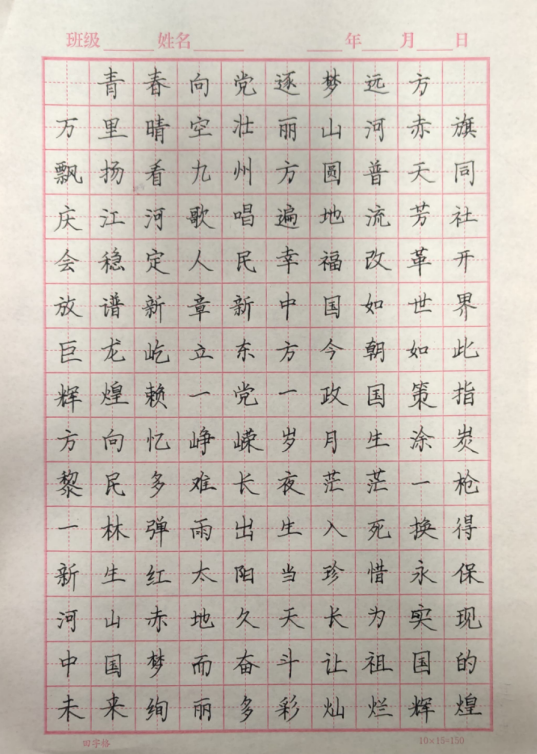 班级 姓名 年 月 日
青春向党逐梦远方
万里晴空壮丽山河赤旗
飘扬看九州方圆普天同
庆江河歌唱遍地流芳社
会稳定人民幸福改革开
放谱新章新中国如世界
巨龙屹立东方今朝如此
辉煌赖一党一政国策指
方向忆峥嵘岁月生涂炭
黎民多难长夜茫茫一枪
一林弹雨出生入死换得
新生红太阳当珍惜永保
河山赤地久天长为实现
中国梦而奋斗让祖国的
未来绚丽多彩灿烂辉煌
田字格 10×15=150